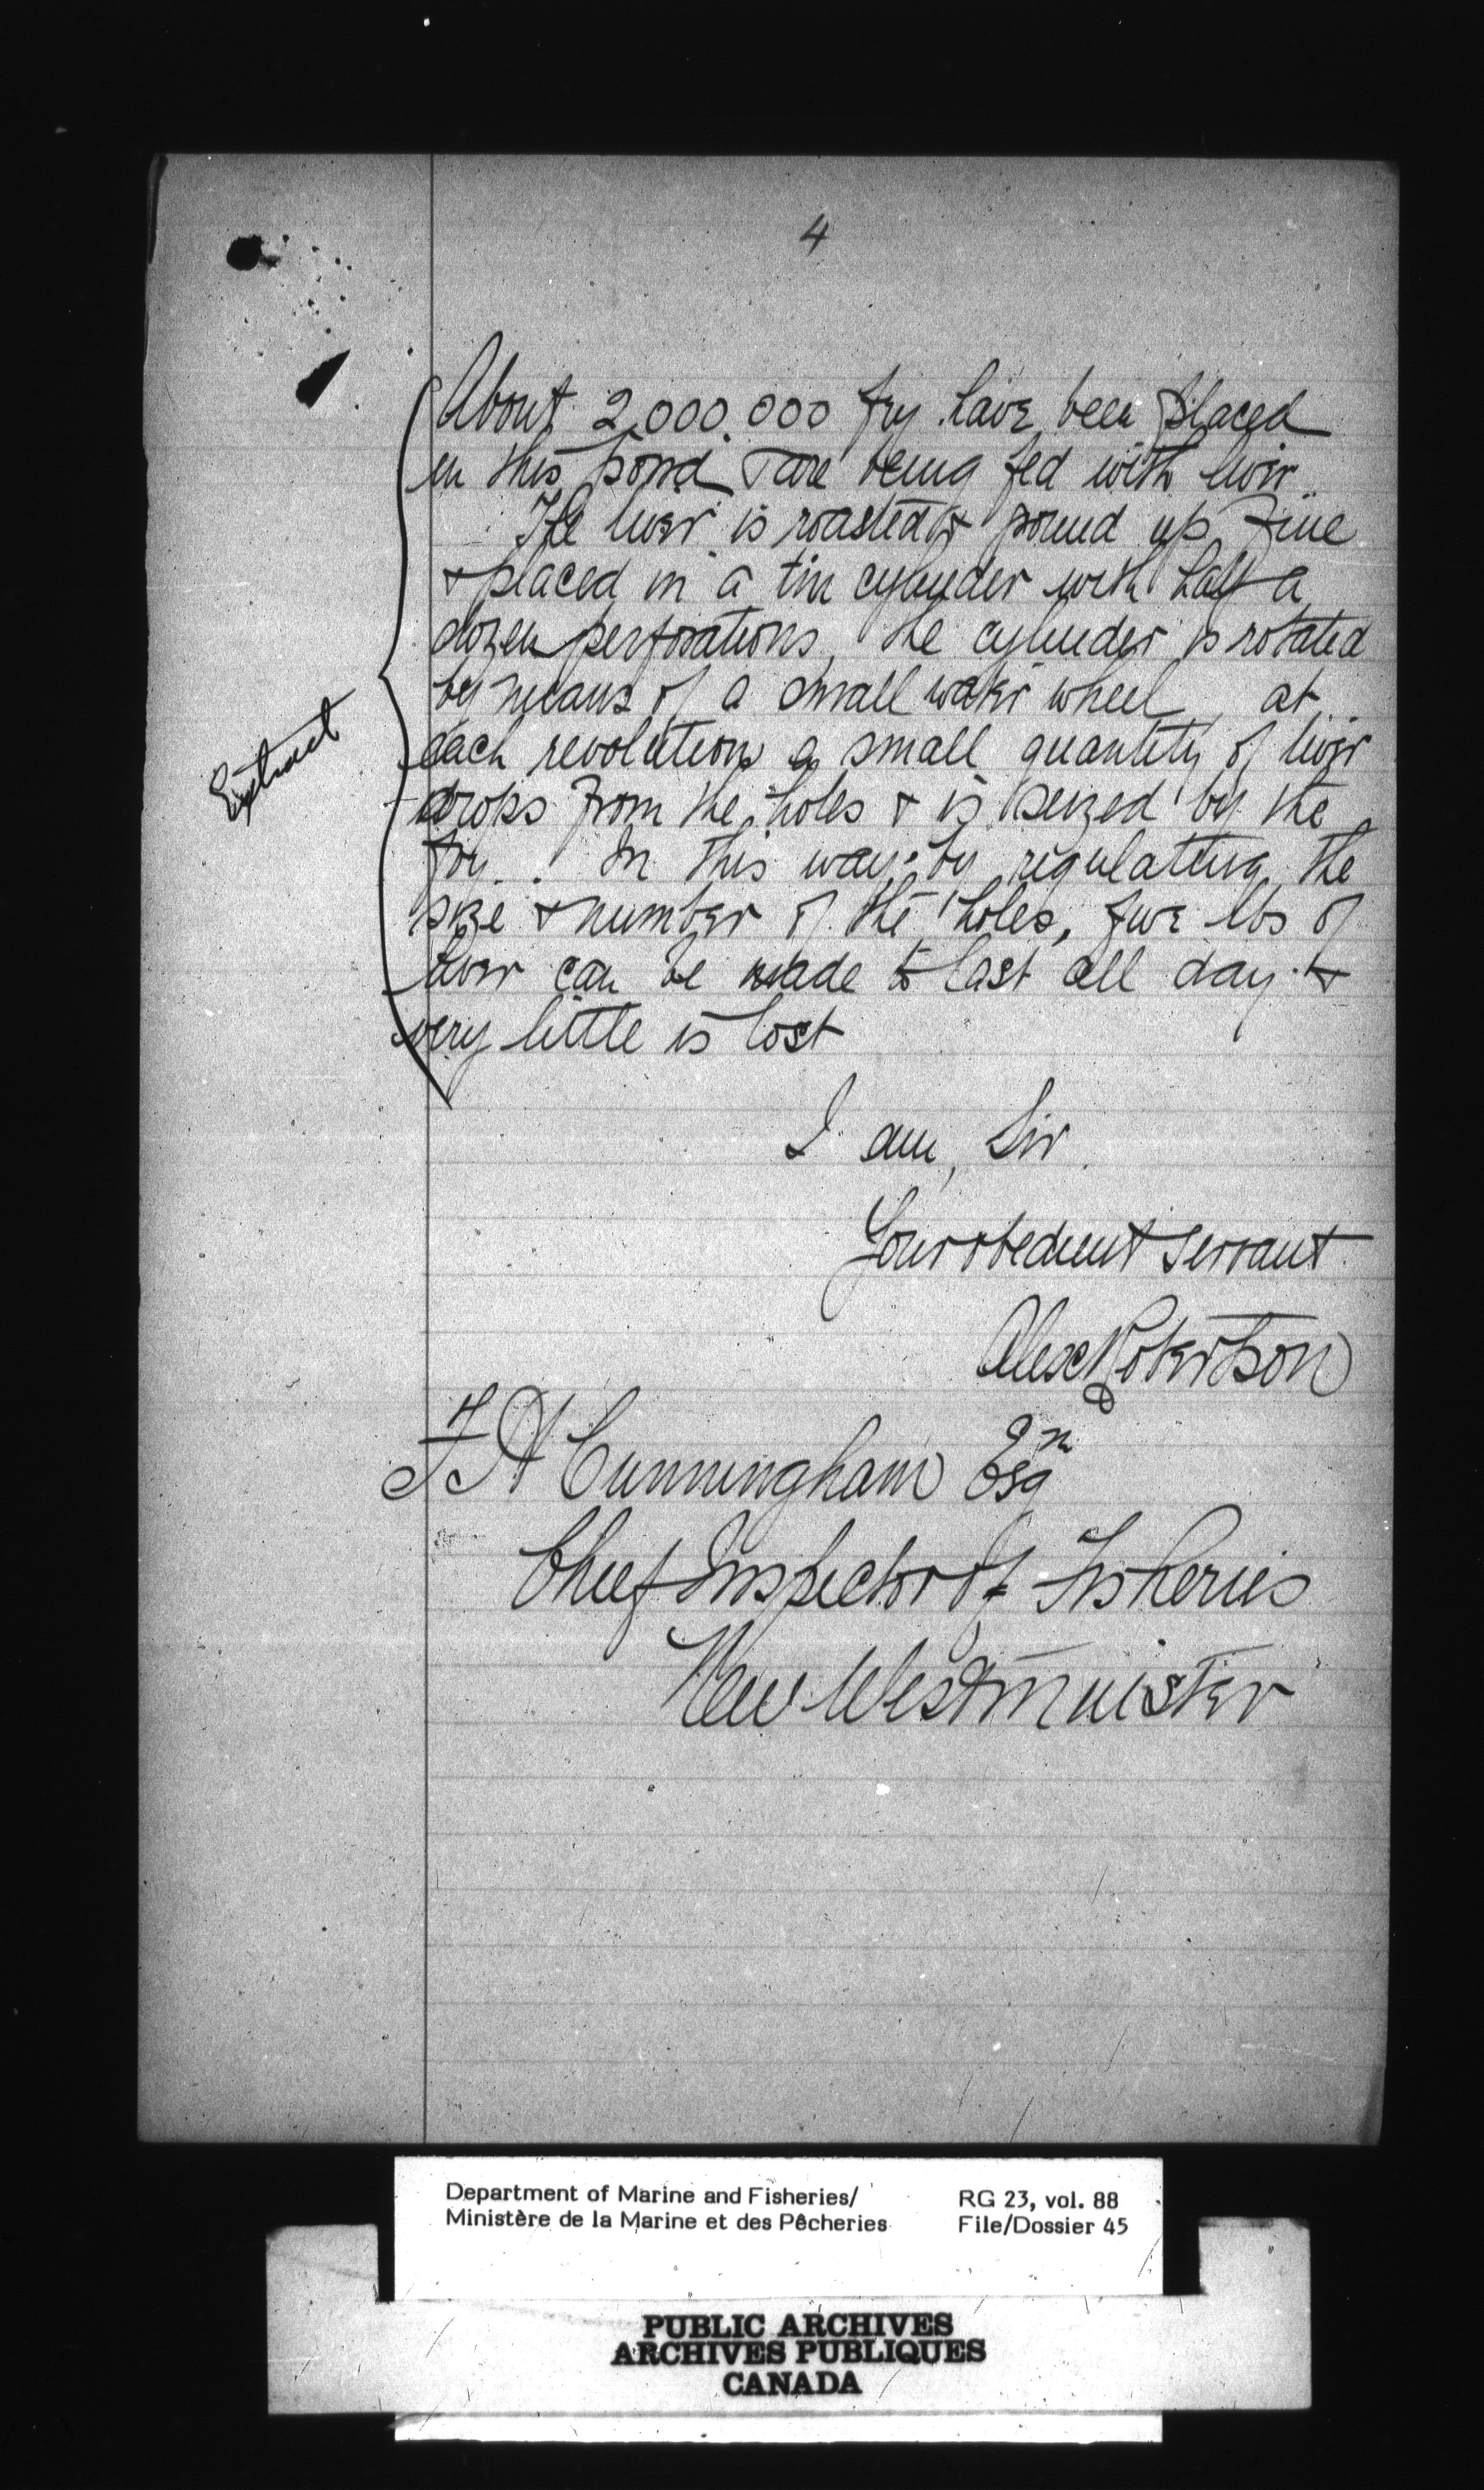 4
About 2,000,000 fry have been placed
in this pond & are being fed with liver.
The liver is roasted & pound up fine
& placed in a tin cylinder with half a
dozen perforations, the cylinder is rotated
by means of a small water wheel, at
each revolution a small quantity of liver
drops from the holes & is seized by the
fry. In this way by regulating the
size & number of the holes, five lbs of
liver can be made to last all day &
very little is lost
Extract
I am, Sir.
Your obedient servant
Alex Robertson
Cunningham Esq
Chief Inspector of Fisheries
New Westminister
Department of Marine and Fisheries/
Ministère de la Marine et des Pêcheries
RG 23, vol. 88
File/Dossier 45
PUBLIC ARCHIVES
ARCHIVES PUBLIQUES
CANADA